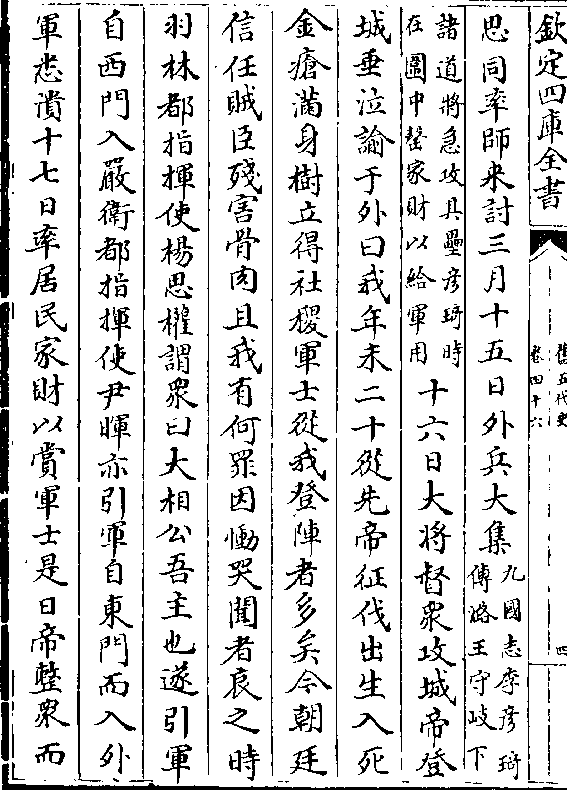 欽定四庫全書
舊五代史
卷四十六
四
思同率師來討三月十五日外兵大集
九國志李彥琦
傳潞王守岐下
諸道將急攻其壘彥琦時
在圍中罄家財以給軍用
十六日大將督眾攻城帝登
城垂泣諭于外曰我年未二十從先帝征伐出生入死
金瘡滿身樹立得社稷軍士從我登陣者多矣今朝廷
信任賊臣殘害骨肉且我有何罪因慟哭聞者哀之時
羽林都指揮使楊思權謂眾曰大相公吾主也遂引軍
自西門入嚴衛都指揮使尹暉亦引軍自東門而入外
軍悉潰十七日率居民家財以賞軍士是日帝整眾而